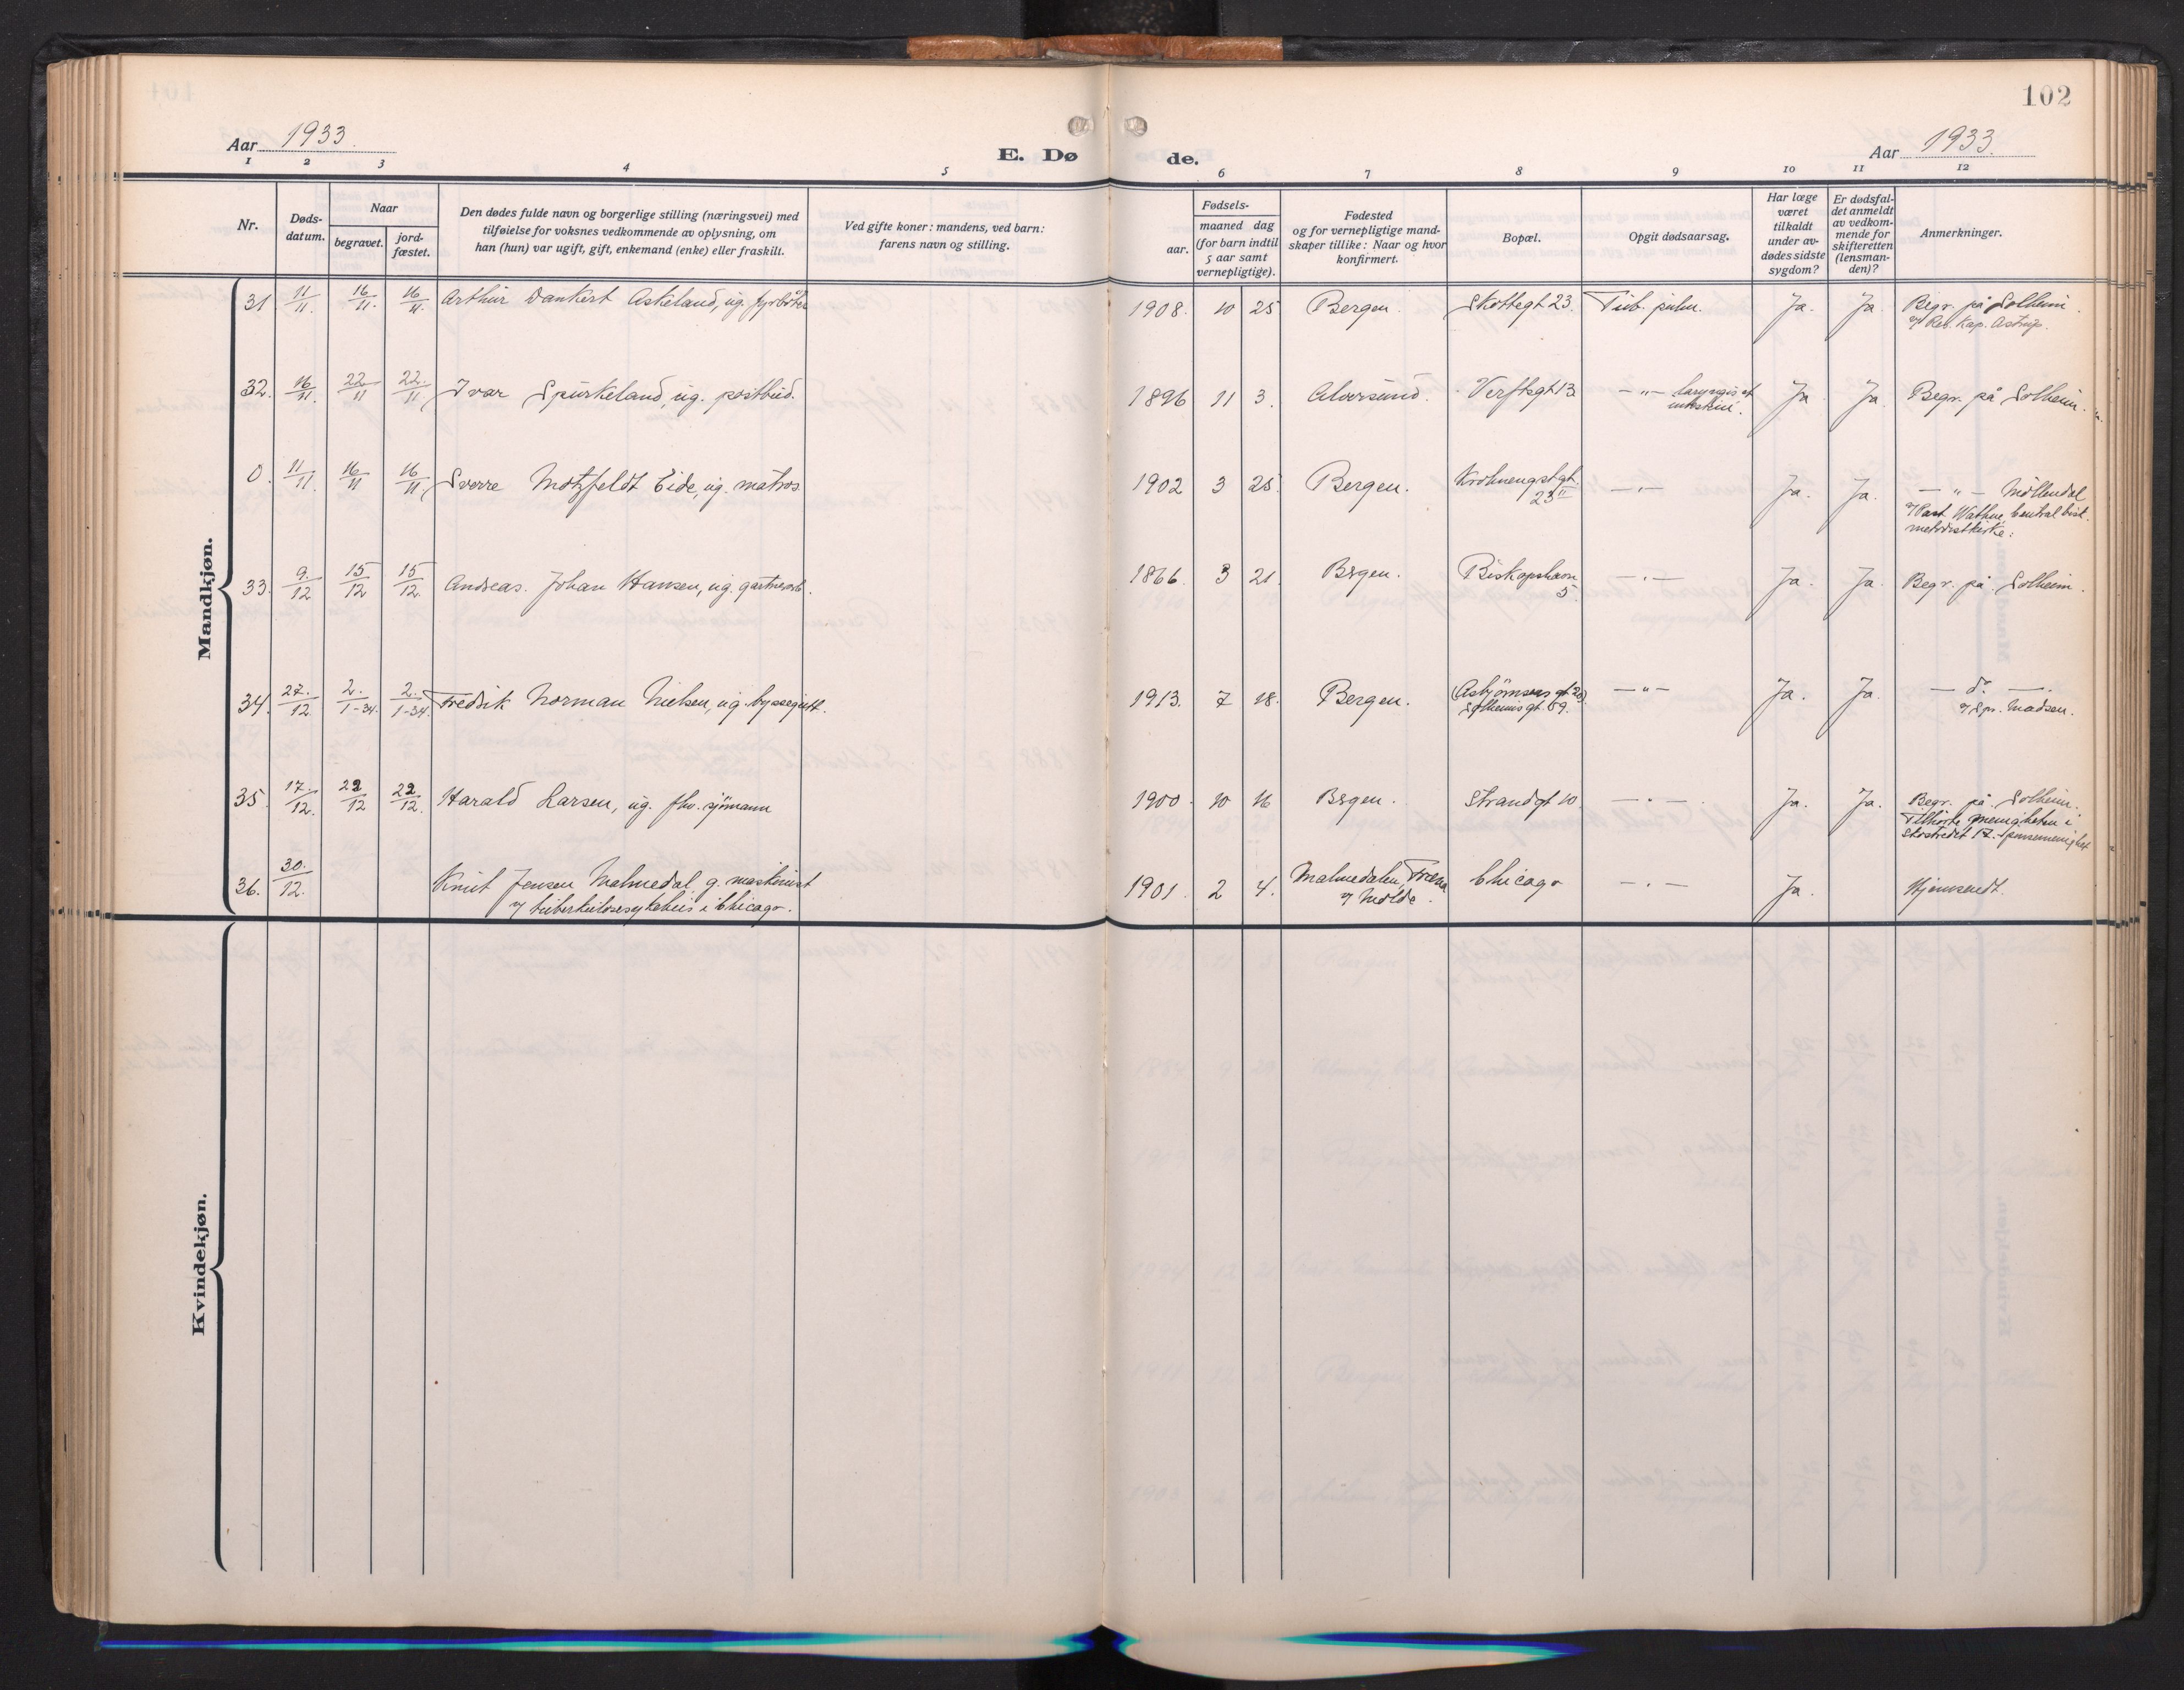 102
Aar 1933.
E. Dø
de.
Aar 1933.
1 2 3 4 5 6 7 8 9 10 11 12
Nr.
Døds-
datum.
Naar
begravet.
jord-
fæstet.
Den dødes fulde navn og borgerlige stilling (næringsvei) med
tilføielse for voksnes vedkommende av oplysning, om
han (hun) var ugift, gift, enkemand (enke) eller fraskilt.
Ved gifte koner: mandens, ved barn:
farens navn og stilling.
Fødsels-
aar.
maaned dag
(for barn indtil
5 aar samt
vernepligtige).
Fødested
og for vernepligtige mand-
skaper tillike: Naar og hvor
konfirmert.
Bopæl.
Opgit dødsaarsag.
Har læge
været
tilkaldt
under av-
dødes sidste
sygdom?
Er dødsfal-
det anmeldt
av vedkom-
mende for
skifteretten
(lensman-
den)?
Anmerkninger.
Mandkjøn.
31. 11/11. 16/11. 16/11. Arthur Dankert Askeland, ug. fyrbøter 1908. 10 25 Bergen. Skottegt 23. Tub. pulm. Ja. Ja. Begr. på Solheim.
v/ Res. Kap. Astrup.
32. 16/11. 22/11 22/11 Ivar Spurkeland, ug. postbud. 1896 11 3. Alversund. Verftsgt 13 —"— laryngis et
intestini. Ja Ja. Begr. på Solheim.
0. 11/11. 16/11 16/11 Sverre Motzfeldt Eide, ug. matros 1902 3 25 Bergen. Krohnengst.gt.
23 II —"— Ja. Ja. —"— Møllendal
v/ Past. Wathne, Central bisk.
metodistkirke.
33. 9./12 15/12 15/12. Andreas Johan Hansen, ug. gartnerarb. 1866. 3 21. Bergen. Biskopshavn
5. —"— Ja. Ja. Begr. på Solheim.
34. 27./12. 2./1-34. 2./1-34. Fredrik Norman Nielsen, ug. byssegutt. 1913. 7 18. Bergen. (Asbjørnsens gt 20)
Solheimsgt. 59. —"— Ja. Ja. — do —.
v/ Spr. Madsen.
35. 17./12. 22/12 22/12. Harald Larsen, ug. fhv. sjømann 1900. 10 16 Bergen. Strandgt 10 —"— Ja. Ja. Begr. på Solheim.
Tilhørte menigheten i
Skostredet 17.
36. 30./12. Knut Jensen Malmedal, g. maskinist
v/ tuberkulosesykehus i Chicago. 1901. 2 4. Malmedalen, Fræna
v/ Molde. Chicago —"— Ja. Hjemsendt.
Kvindekjøn.